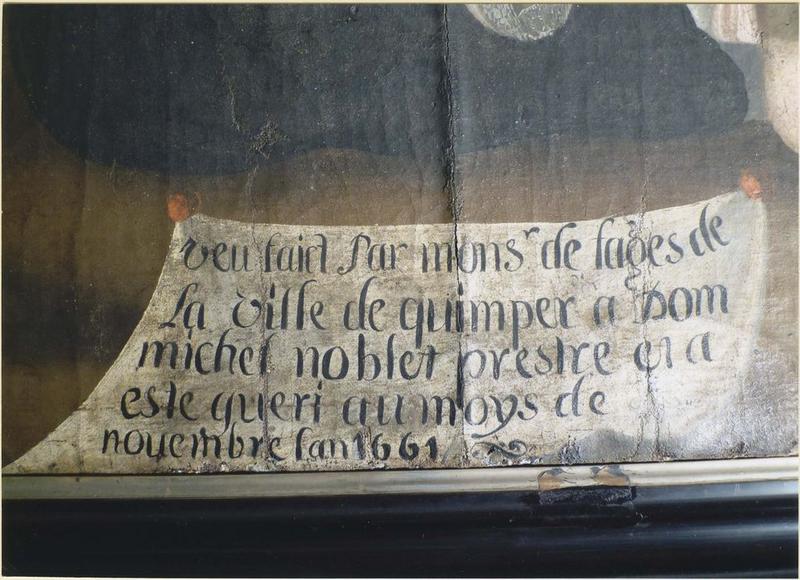 veu faict Par monsr de lages de
La Ville de quimper a Dom
michel noblet prestre et a
este queri au moys de
novembre lan 1661